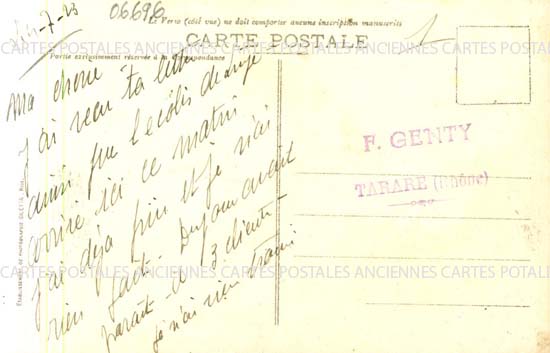 24-7-23
06696
Le Verso (côté vue) ne doit comporter aucune inscription manuscrite
CARTE POSTALE
Partie exclusivement réservée à la Correspondance
Ma chere
j'ai recu ta lettre
ainsi que le colis de linge
arrivé ici ce matin
j'ai déja fini et je n'ai
rien fait.
parait-il 3 clients
je n'ai rien
F. GENTY
TARARE (Rhône)
CARTES POSTALES ANCIENNES CARTES POSTALES ANCIENNES CARTES POTALES
CARTES POSTALES ANCIENNES CARTES POSTALES ANCIENNES CARTES POTALES